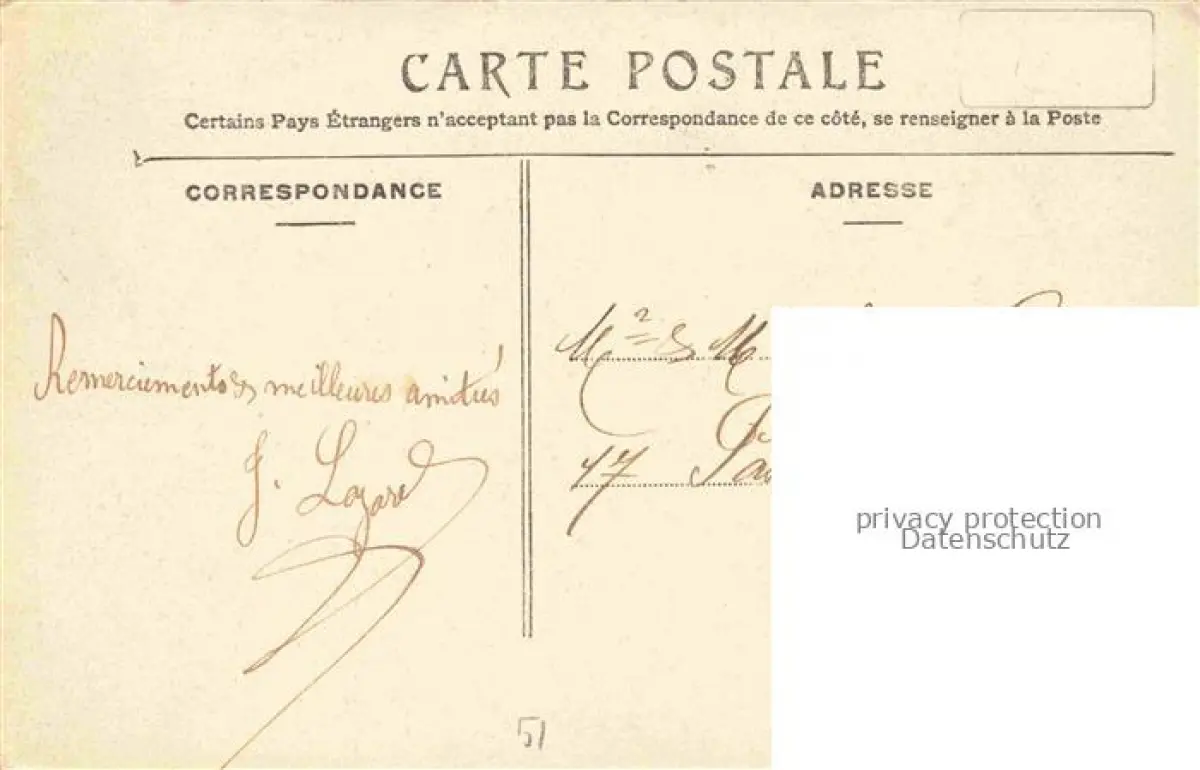 CARTE POSTALE
Certains Pays Étrangers n'acceptant pas la Correspondance de ce côté, se renseigner à la Poste
CORRESPONDANCE
ADRESSE
Remerciements & meilleures amitiés
J. Lazard
M
17
privacy protection
Datenschutz
51